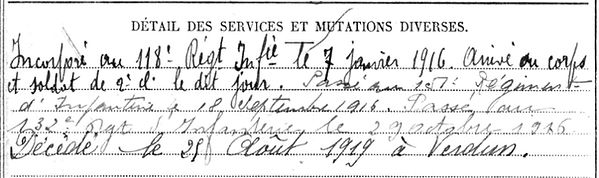 DÉTAIL DES SERVICES ET MUTATIONS DIVERSES.
Incorporé au 118e Régt Infie le 7 janvier 1916. Arrivé au corps
et soldat de 2e cl. le dit jour. Passé au Régiment
d'Infanterie le 18 Septembre 1916. Passé au
132e Régt d'Infanterie le 29 octobre 1916
Décédé le 25 Août 1919 à Verdun.